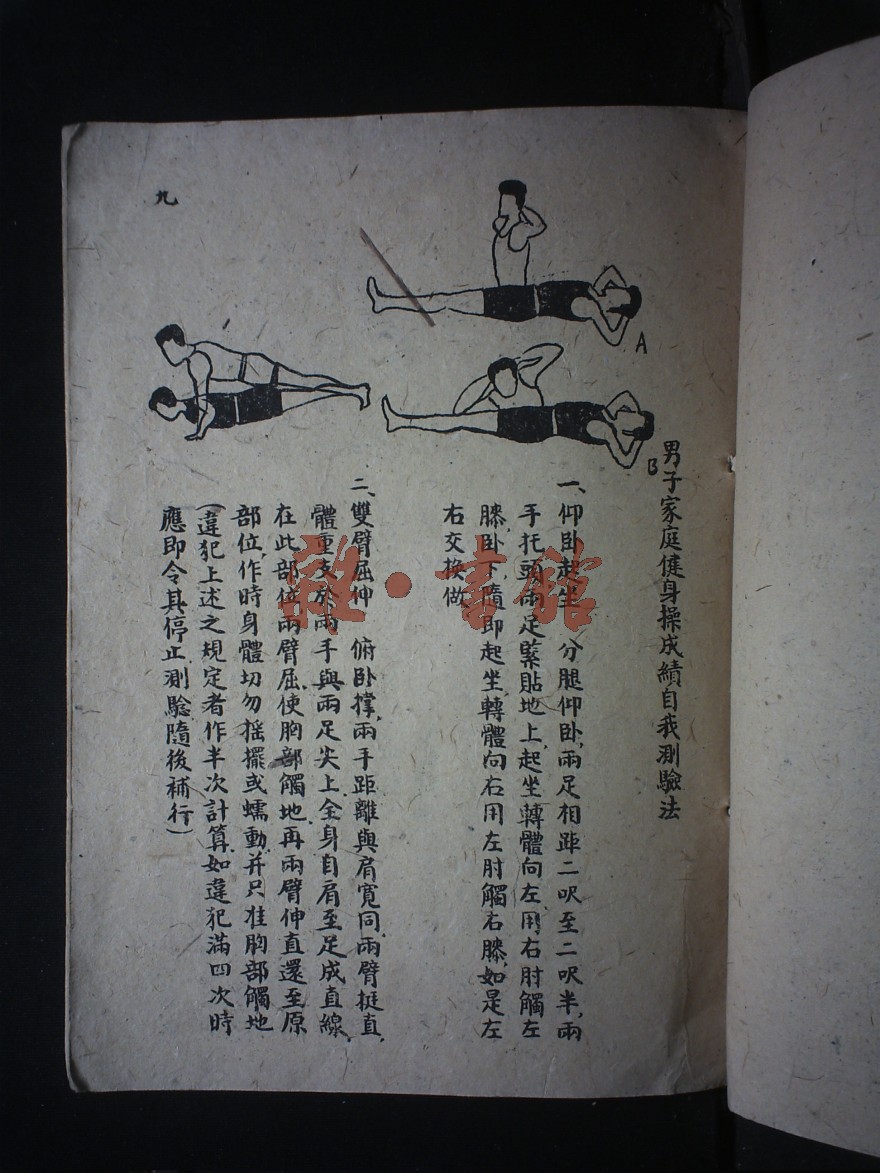 男子家庭健身操成績自我測驗法
一、仰卧起坐 分腿仰卧，兩足相距二呎至二呎半，兩
手托頭，兩足緊貼地上，起坐轉體向左，用右肘觸左
膝，卧下，隨即起坐，轉體向右用左肘觸右膝，如是左
右交換做
二、雙臂屈伸 俯卧撑，兩手距離與肩寬同，兩臂挺直，
體重支於兩手與兩足尖上，全身自肩至足成直線，
在此部位兩臂屈，使胸部觸地，再兩臂伸直還至原
部位，作時身體切勿摇擺或蠕動，并只准胸部觸地
（違犯上述之規定者作半次計算，如違犯滿四次時
應即令其停止測驗隨後補行）
A
B
九
雜·書館